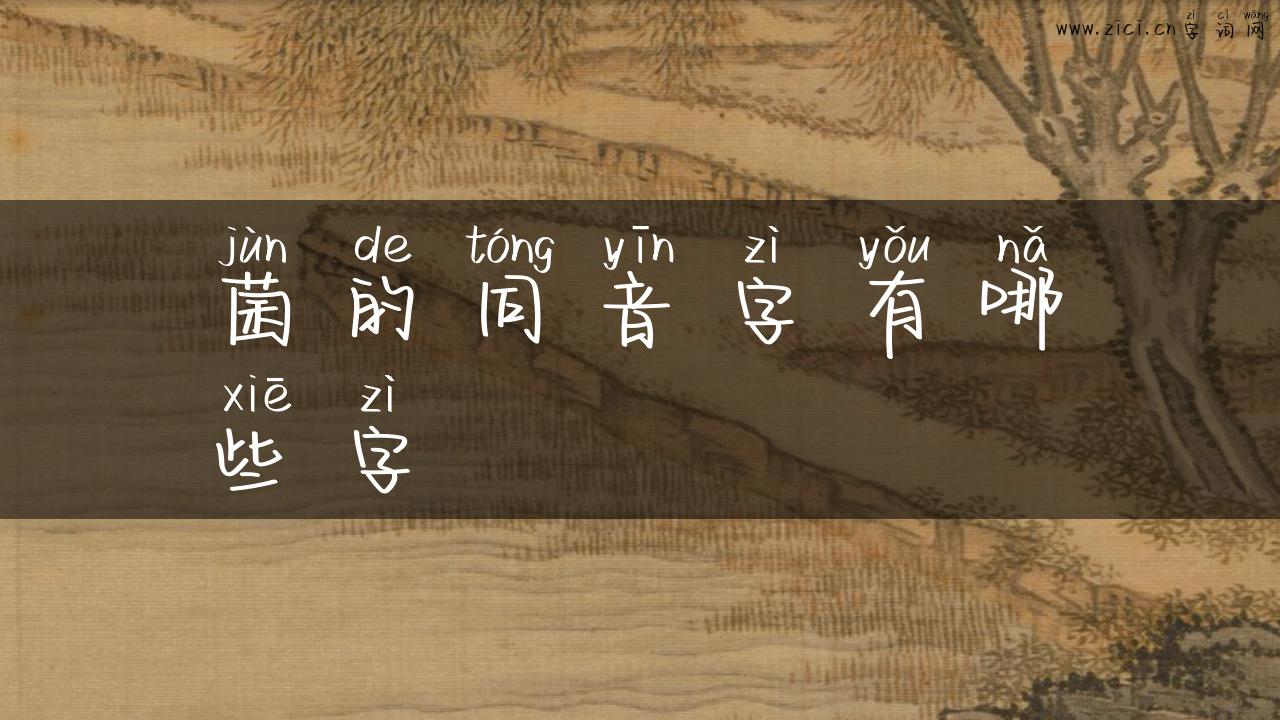 zì cí wǎng
www.zici.cn字词网
jùn de tóng yīn zì yǒu nǎ
菌的同音字有哪
xiē zì
些字